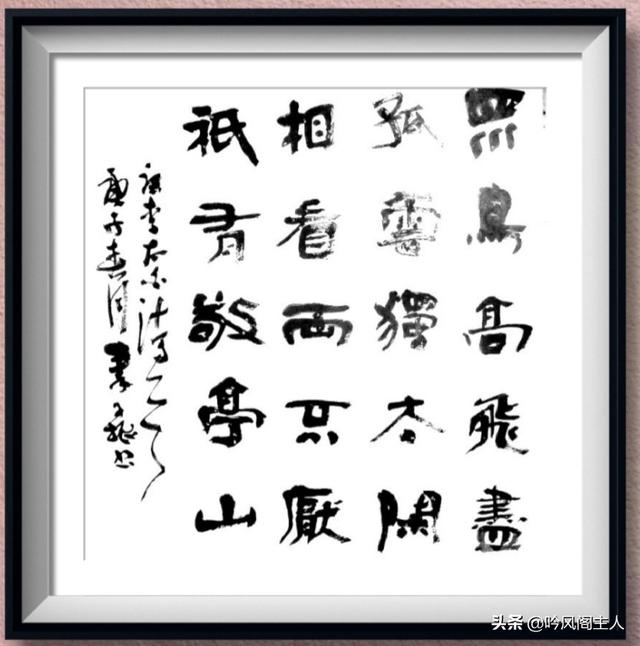 眾鳥高飛盡
孤雲獨去閑
相看兩不厭
祇有敬亭山
李太白詩
庚子春
头条 @吟风阁主人